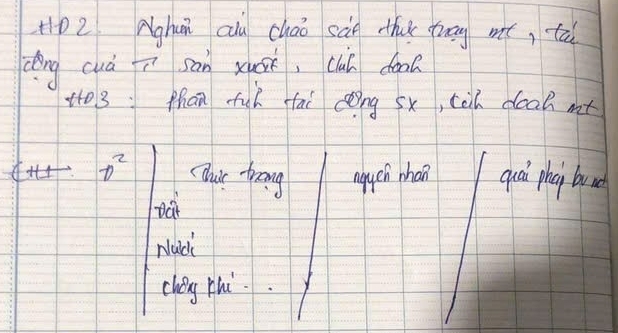 HĐ2. Nghiên cứu khảo sát thực trạng mt, tác
động của sản xuất, kinh doanh
HĐ3: Phân tích tác động sx, kinh doanh mt
Đ² Thực trạng nguyên nhân giải pháp bv mt
Đất
Nước
không khí . .